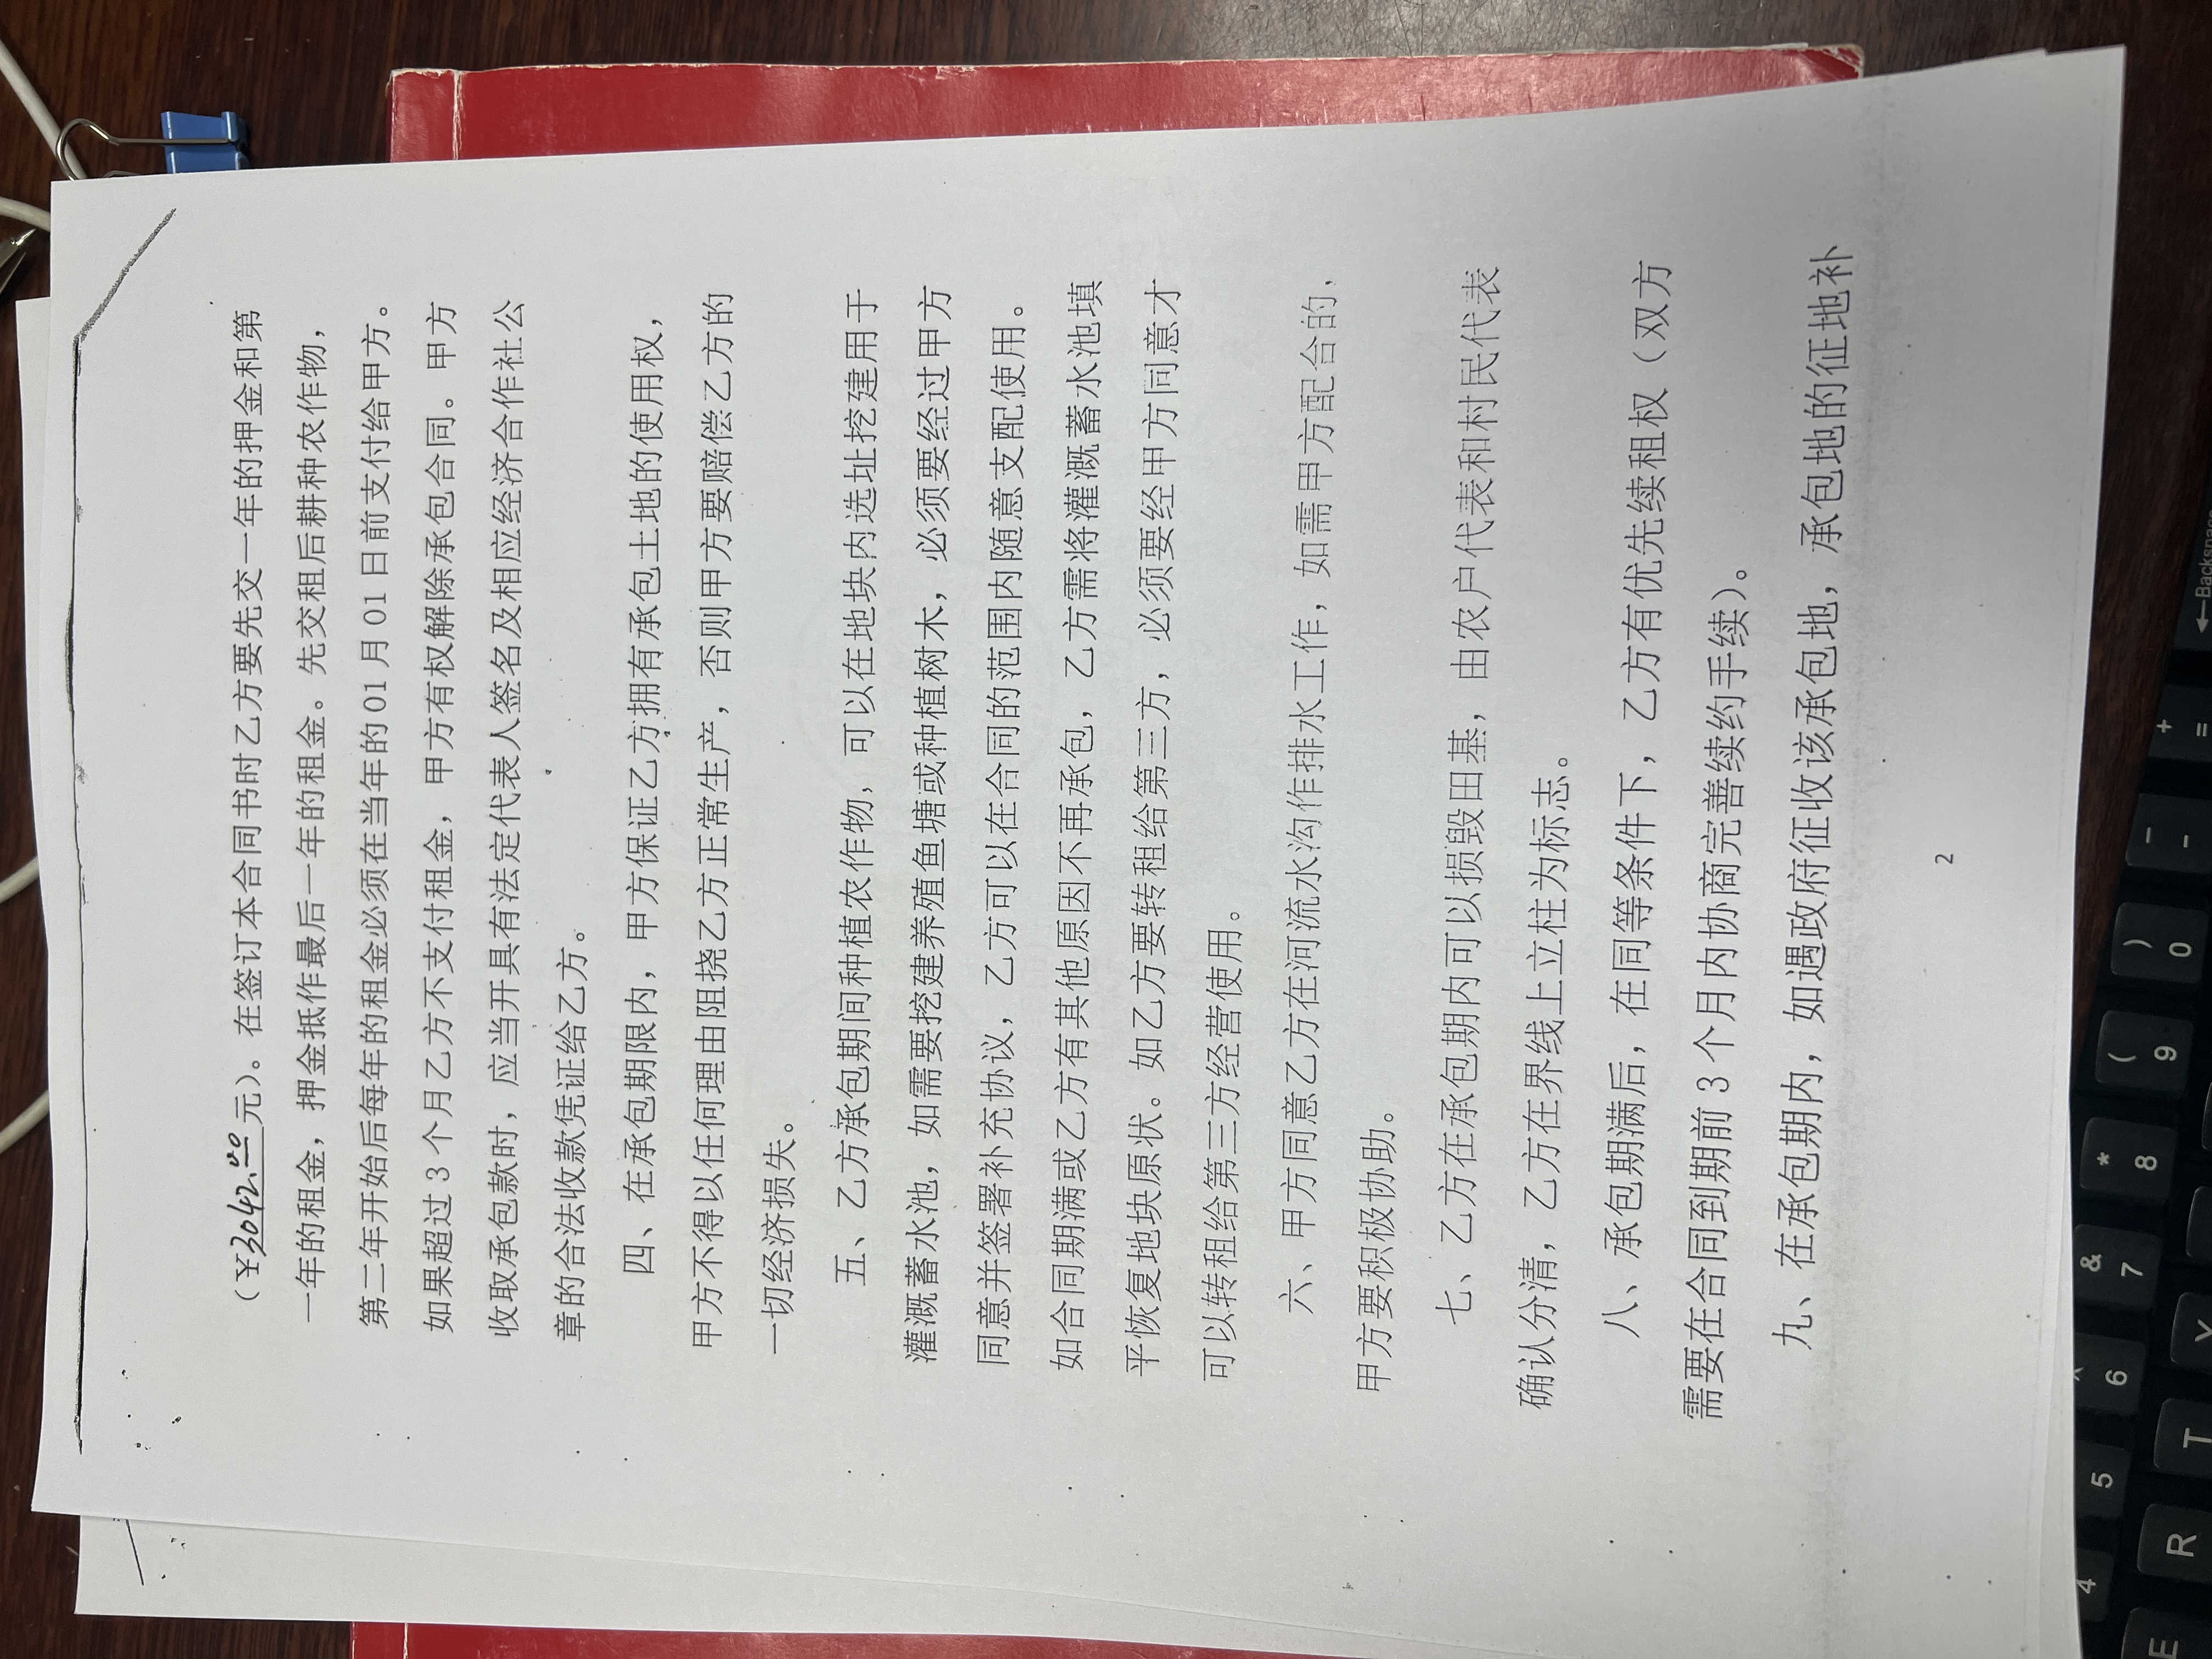 （￥3042.00元）。在签订本合同书时乙方要先交一年的押金和第
一年的租金，押金抵作最后一年的租金。先交租后耕种农作物，
第二年开始后每年的租金必须在当年的01月01日前支付给甲方。
如果超过3个月乙方不支付租金，甲方有权解除承包合同。甲方
收取承包款时，应当开具有法定代表人签名及相应经济合作社公
章的合法收款凭证给乙方。
四、在承包期限内，甲方保证乙方拥有承包土地的使用权，
甲方不得以任何理由阻挠乙方正常生产，否则甲方要赔偿乙方的
一切经济损失。
五、乙方承包期间种植农作物，可以在地块内选址挖建用于
灌溉蓄水池，如需要挖建养殖鱼塘或种植树木，必须要经过甲方
同意并签署补充协议，乙方可以在合同的范围内随意支配使用。
如合同期满或乙方有其他原因不再承包，乙方需将灌溉蓄水池填
平恢复地块原状。如乙方要转租给第三方，必须要经甲方同意才
可以转租给第三方经营使用。
六、甲方同意乙方在河流水沟作排水工作，如需甲方配合的，
甲方要积极协助。
七、乙方在承包期内可以损毁田基，由农户代表和村民代表
确认分清，乙方在界线上立柱为标志。
八、承包期满后，在同等条件下，乙方有优先续租权（双方
需要在合同到期前3个月内协商完善续约手续）。
九、在承包期内，如遇政府征收该承包地，承包地的征地补
2
←Backspace
+
=
—
-
)
0
(
9
*
8
&
7
^
6
5
4
Y
T
R
E